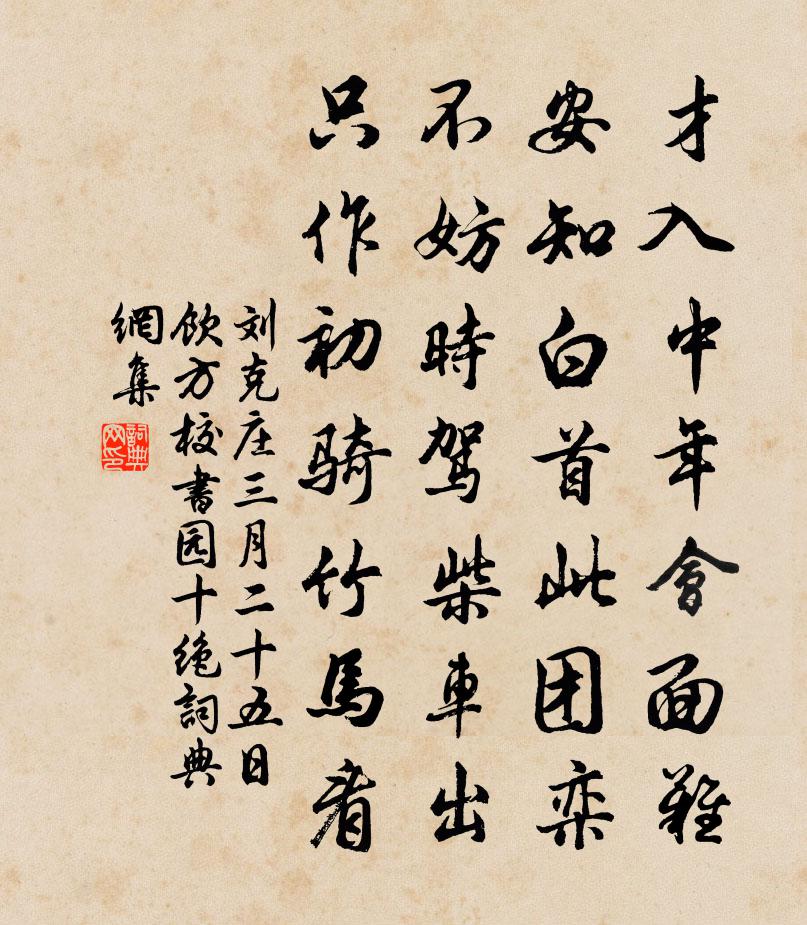 才入中年會面難
安知白首此团栾
不妨時駕柴車出
只作初骑竹馬看
刘克庄三月二十五日
飲方校書园十绝詞典
網集
詞典網印